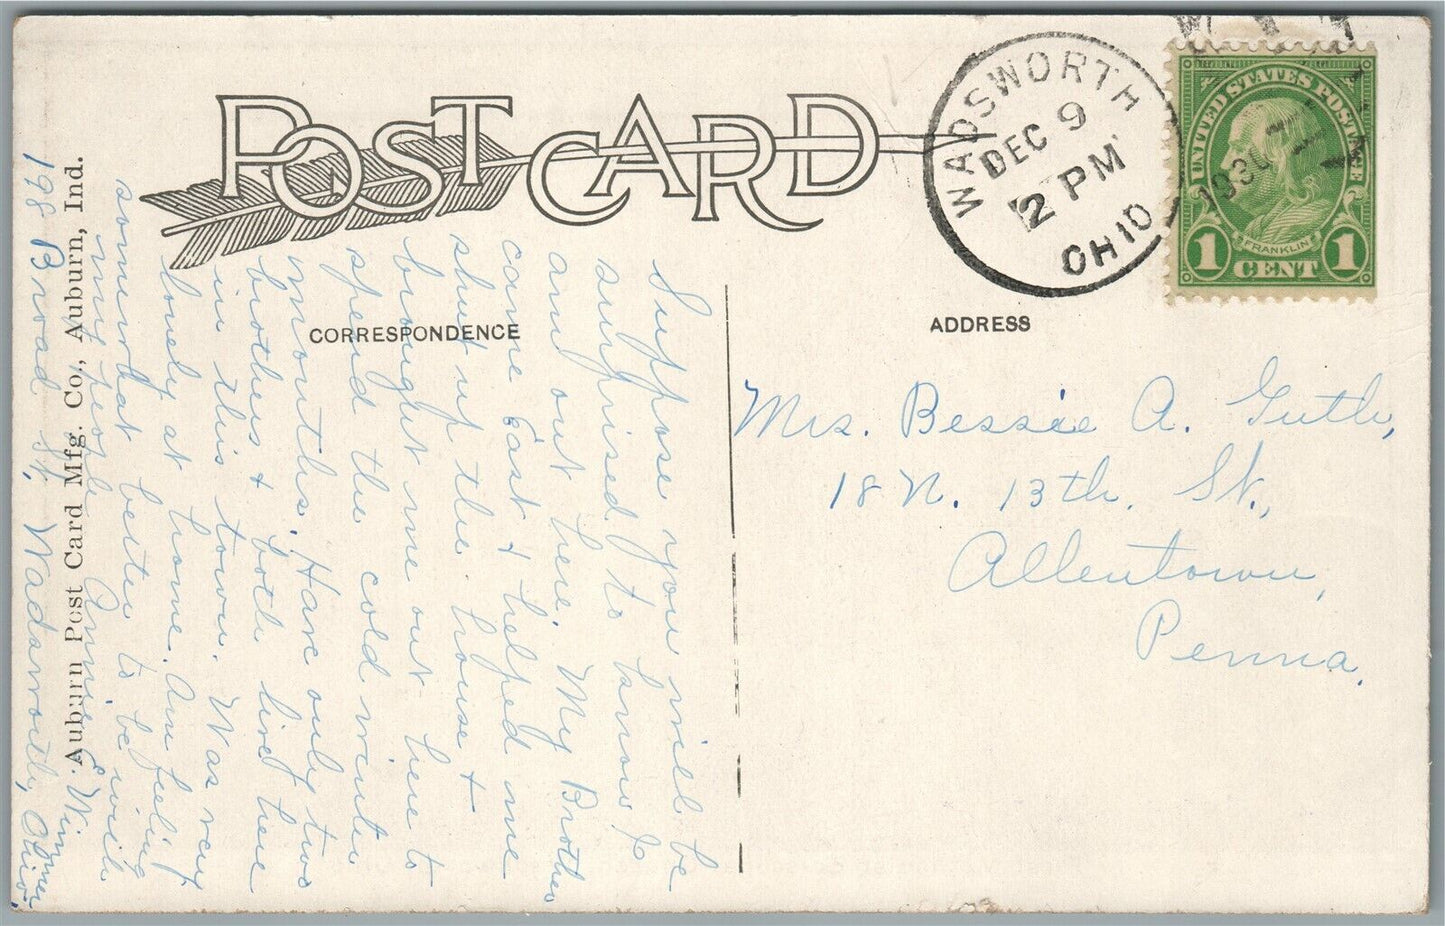 POST CARD
CORRESPONDENCE
ADDRESS
WADSWORTH
DEC 9
2 PM
1930
OHIO
UNITED STATES POSTAGE
FRANKLIN
1 CENT 1
Mrs. Bessie A. Guth,
18 N. 13th. St.,
Allentown,
Penna.
Suppose you will be
surprised to know I
am out here. My Brother
came East & helped me
shut up the house &
brought me out here to
spend the cold winter
months. Have only two
brothers & both live here
in this town. Was very
lonely at home. Am feeling
somewhat better to be with
my people. Annie E. Wimmer
198 Broad St, Wadsworth, Ohio.
Auburn Post Card Mfg. Co., Auburn, Ind.